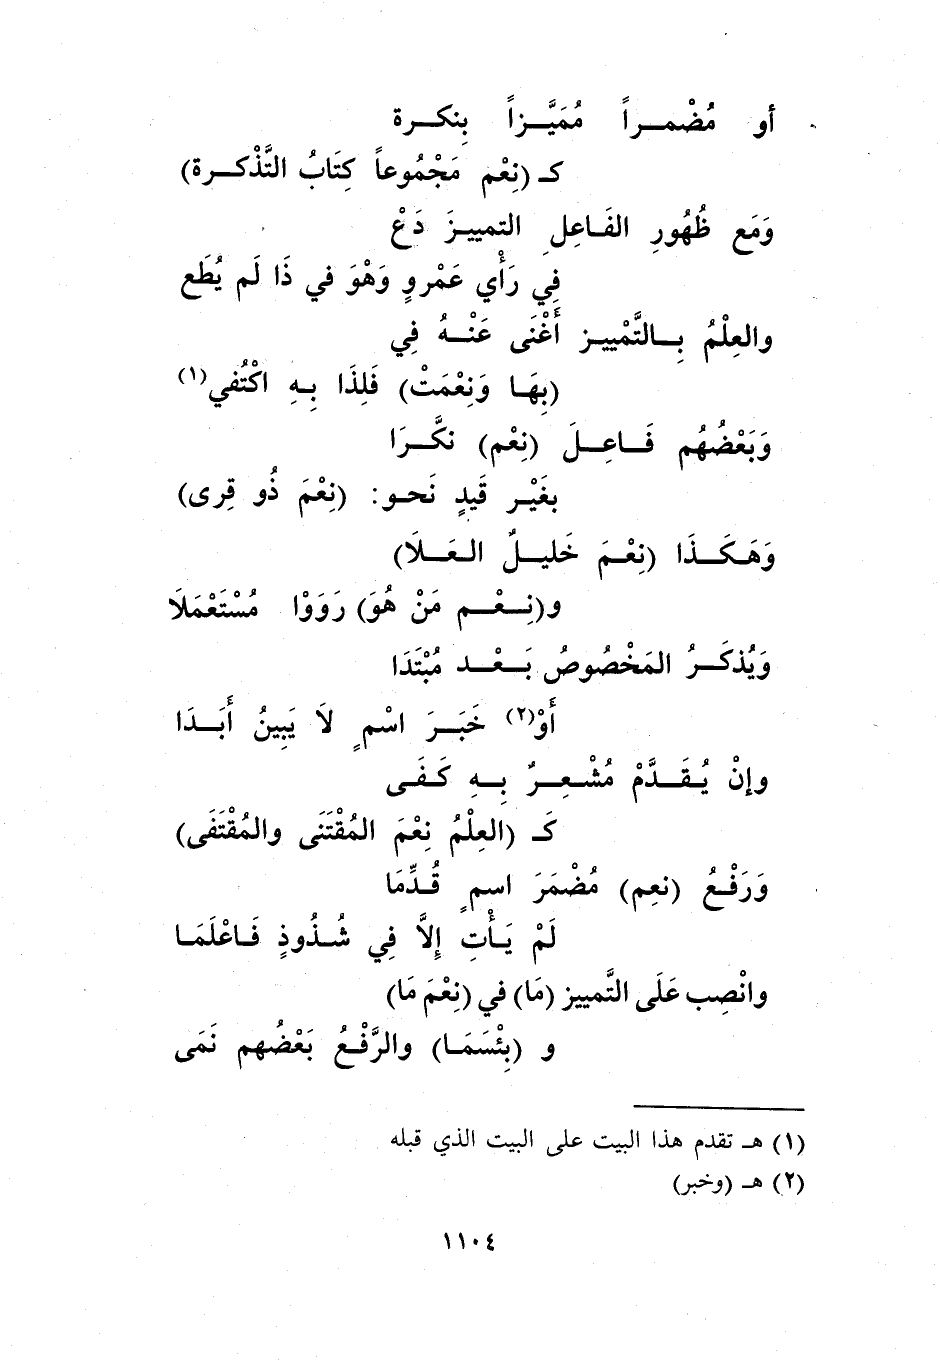 أو مُضْمـراً مُمَيَّـزاً بِنكـرة
كـ (نِعْم مَجْمُوعاً كِتَابُ التَّذْكـرة)
وَمَع ظُهُورِ الفَـاعِلِ التمييـزَ دَعْ
فِي رَأْي عَمْرٍو وَهْوَ في ذَا لَم يُطَع
والعِلْمُ بِـالتَّمْييـز أَغْنَى عَنْـهُ فِي
(بِهَـا وَنِعْمَتْ) فَلِذَا بِـهِ اكْتُفي(١)
وَبَعْضُهُم فَـاعِـلَ (نِعْم) نكَّـرَا
بغَيْـر قَيدٍ نَحـو: (نِعْمَ ذُو قِرى)
وَهَـكَـذَا (نِعْـمَ خَليـلُ العَـلَا)
و(نِـعْـم مَنْ هُوَ) رَوَوْا مُسْتَعْمَلَا
وَيُذكَـرُ المَخْصُوصُ بَـعْـد مُبْتَدَا
أَوْ(٢) خَبَـرَ اسْمٍ لاَ يَبِينُ أَبَـدَا
وإنْ يُـقَـدَّمْ مُشْعِـرٌ بِـهِ كَـفَـى
كَـ (العِلْمُ نِعْمَ المُقْتَنَى والمُقْتَفَى)
وَرَفْـعُ (نعِم) مُضْمَرَ اسمٍ قُـدِّمَا
لَمْ يَـأْتِ إلاَّ فِي شُـذُوذٍ فَـاعْلَمَـا
وانْصِب عَلَى التَّمييز (مَا) في (نِعْمَ مَا)
و (بِئْسَمَـا) والرَّفْـعُ بَعْضُهم نَمَى
(١) هـ تقدم هذا البيت على البيت الذي قبله
(٢) هـ (وخبر)
١١٠٤